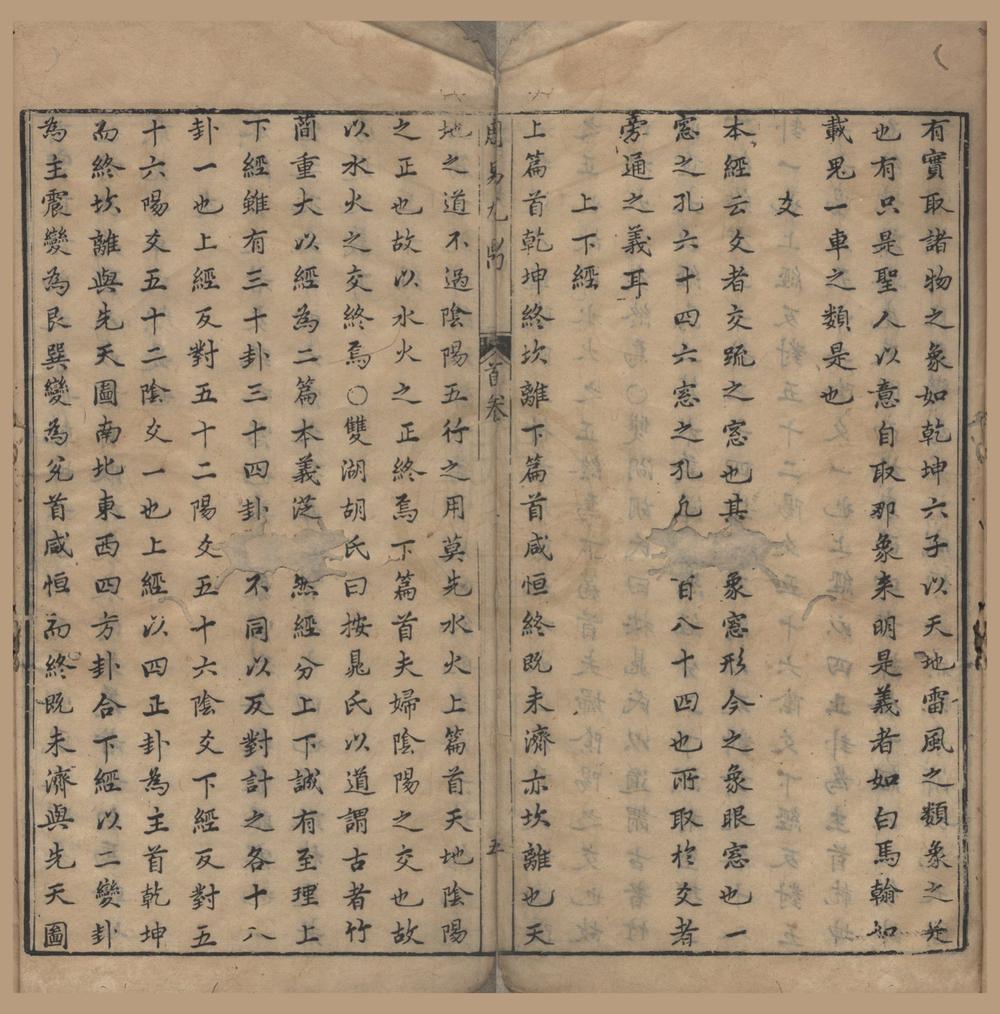 有實取諸物之象如乾坤六子以天地雷風之類象之是
也有只是聖人以意自取那象来明是義者如白馬翰如
載鬼一車之類是也
爻
本經云爻者交疏之窓也其象窓形今之象眼窓也一
窓之孔六十四六窓之孔凡百八十四也所取於爻者
旁通之義耳
上下經
上篇首乾坤終坎離下篇首咸恒終既未濟亦坎離也天
周易九鼎 首卷 五
地之道不過陰陽五行之用莫先水火上篇首天地陰陽
之正也故以水火之正終焉下篇首夫婦陰陽之交也故
以水火之交終焉○雙湖胡氏曰按晁氏以道謂古者竹
簡重大以經為二篇本義從然經分上下誠有至理上
下經雖有三十卦三十四卦不同以反對計之各十八
卦一也上經反對五十二陽爻五十六陰爻下經反對五
十六陽爻五十二陰爻一也上經以四正卦為主首乾坤
而終坎離與先天圖南北東西四方卦合下經以二變卦
為主震變為艮巽變為兌首咸恒而終既未濟與先天圖